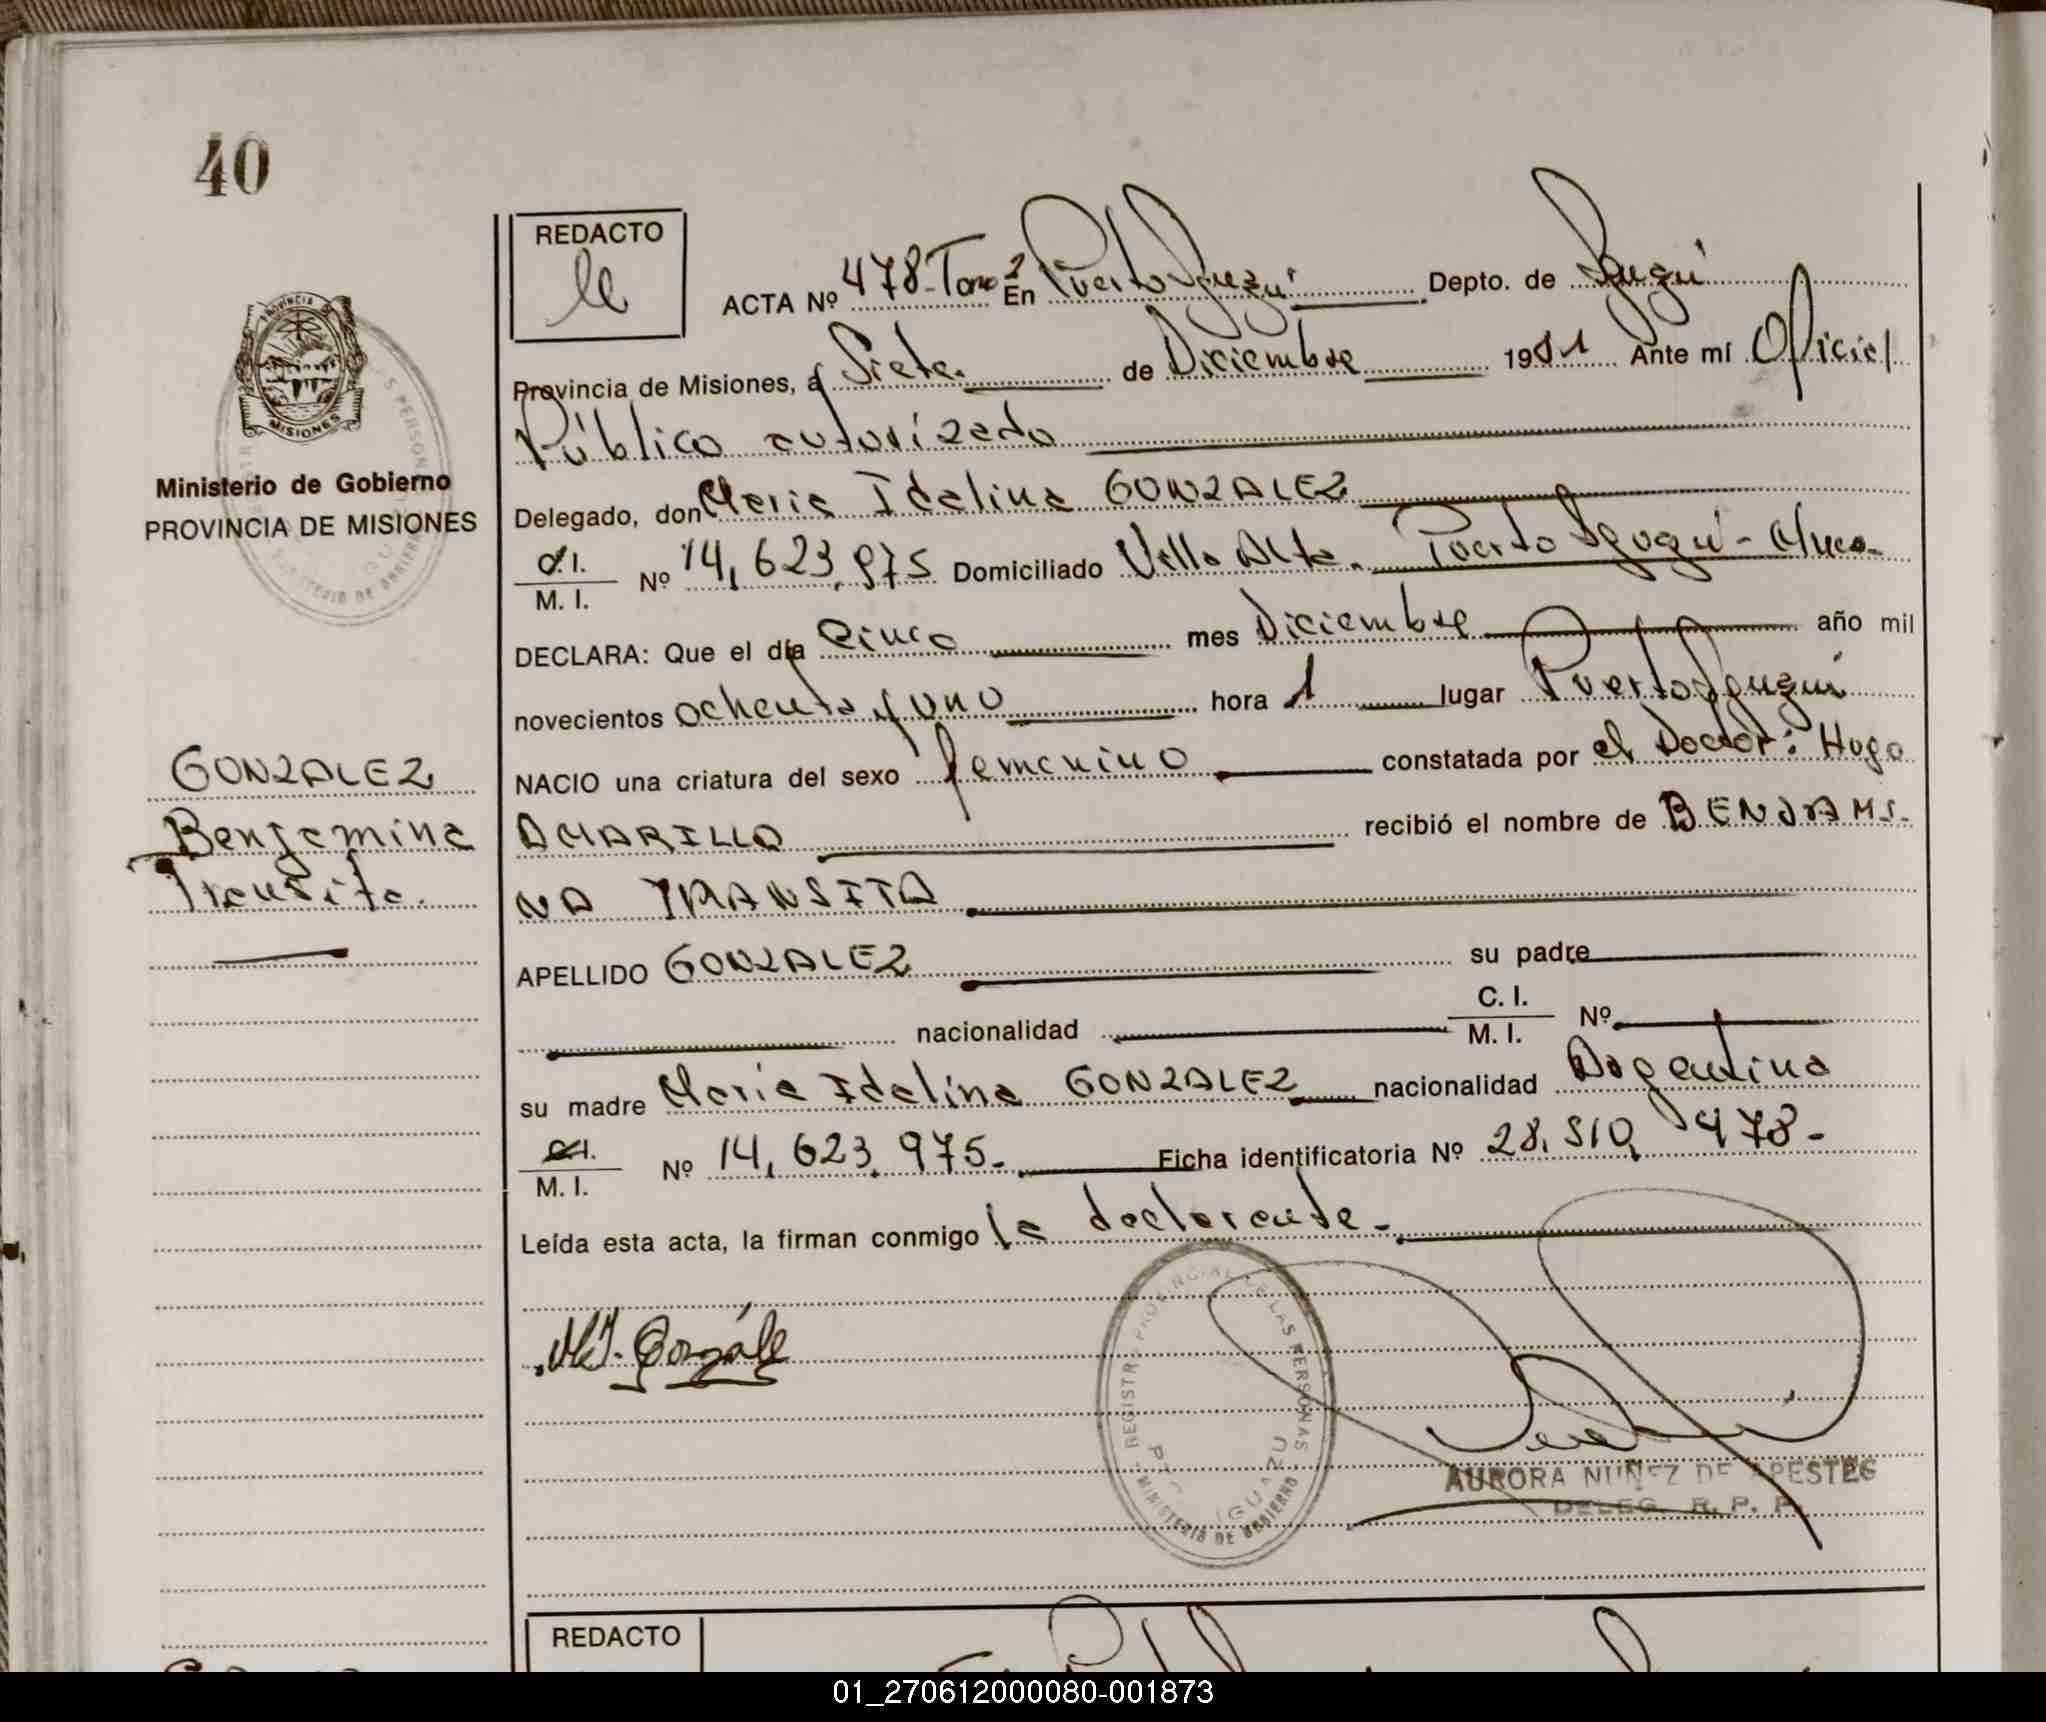 40
REDACTO
ACTA Nº 478-Tomo 2 En Puerto Iguazú Depto. de Iguazú
Provincia de Misiones, a Siete de Diciembre 1981 Ante mí Oficial
Público autorizado
Delegado, don Maria Idalina GONZALEZ
C.I.
M. I. Nº 14,623,975 Domiciliado Villa Alta. Puerto Iguazú
DECLARA: Que el día cinco mes Diciembre año mil
novecientos ochenta y uno hora 1 lugar Puerto Iguazú
NACIO una criatura del sexo femenino constatada por el Doctor: Hugo
AMARILLA recibió el nombre de BENJAMI-
NA TRANSITA
APELLIDO GONZALEZ su padre
nacionalidad C. I.
M. I. Nº
su madre Maria Idalina GONZALEZ nacionalidad Argentina
C.I.
M. I. Nº 14,623.975. Ficha identificatoria Nº 28.510.478-
Leída esta acta, la firman conmigo la declarante.
M.I. Gonzále
REGISTRO PROVINCIAL DE LAS PERSONAS
PTO. IGUAZU
MINISTERIO DE GOBIERNO
AURORA NUÑEZ DE APESTEG
DELEG. R. P. P.
PROVINCIA
MISIONES
Ministerio de Gobierno
PROVINCIA DE MISIONES
GONZALEZ
Benjamina
Transita.
REDACTO
01_270612000080-001873